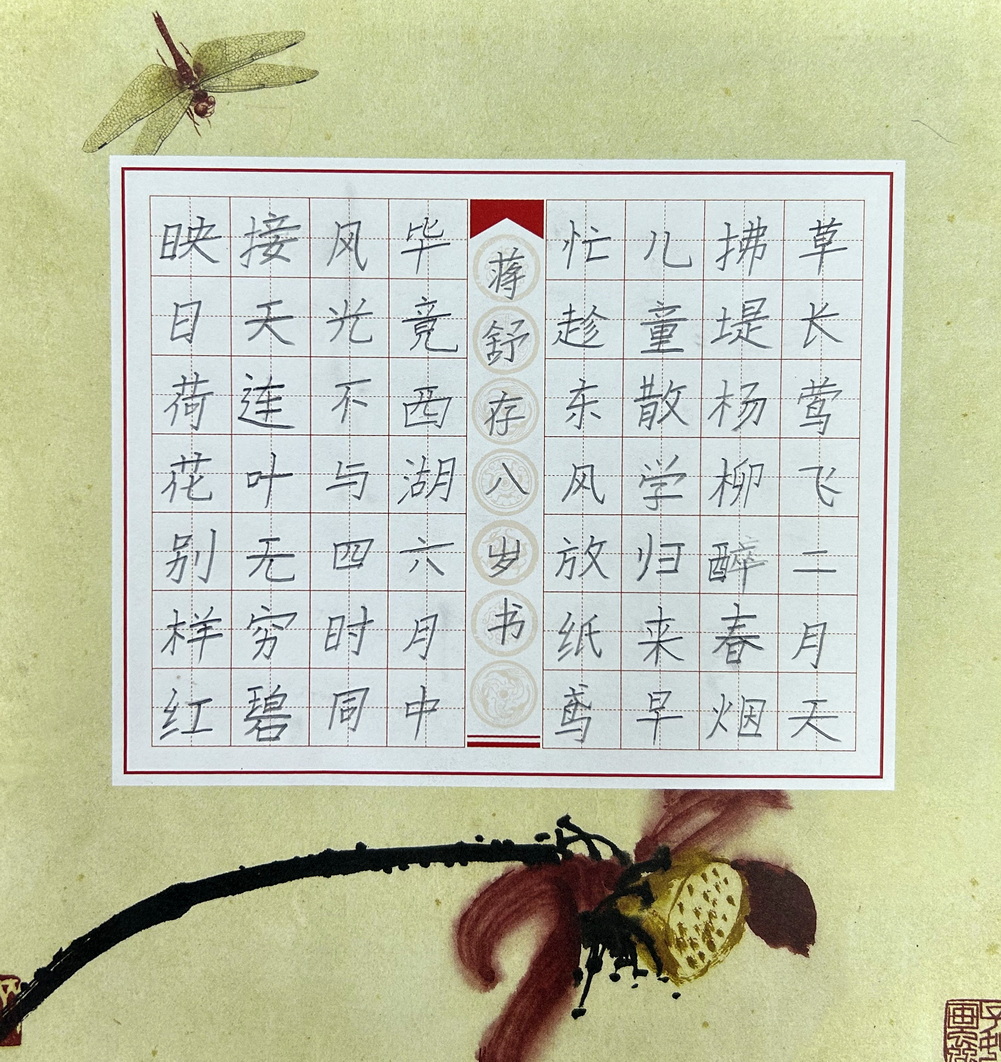 草长莺飞二月天
拂堤杨柳醉春烟
儿童散学归来早
忙趁东风放纸鸢
蒋舒存八岁书
毕竟西湖六月中
风光不与四时同
接天连叶无穷碧
映日荷花别样红